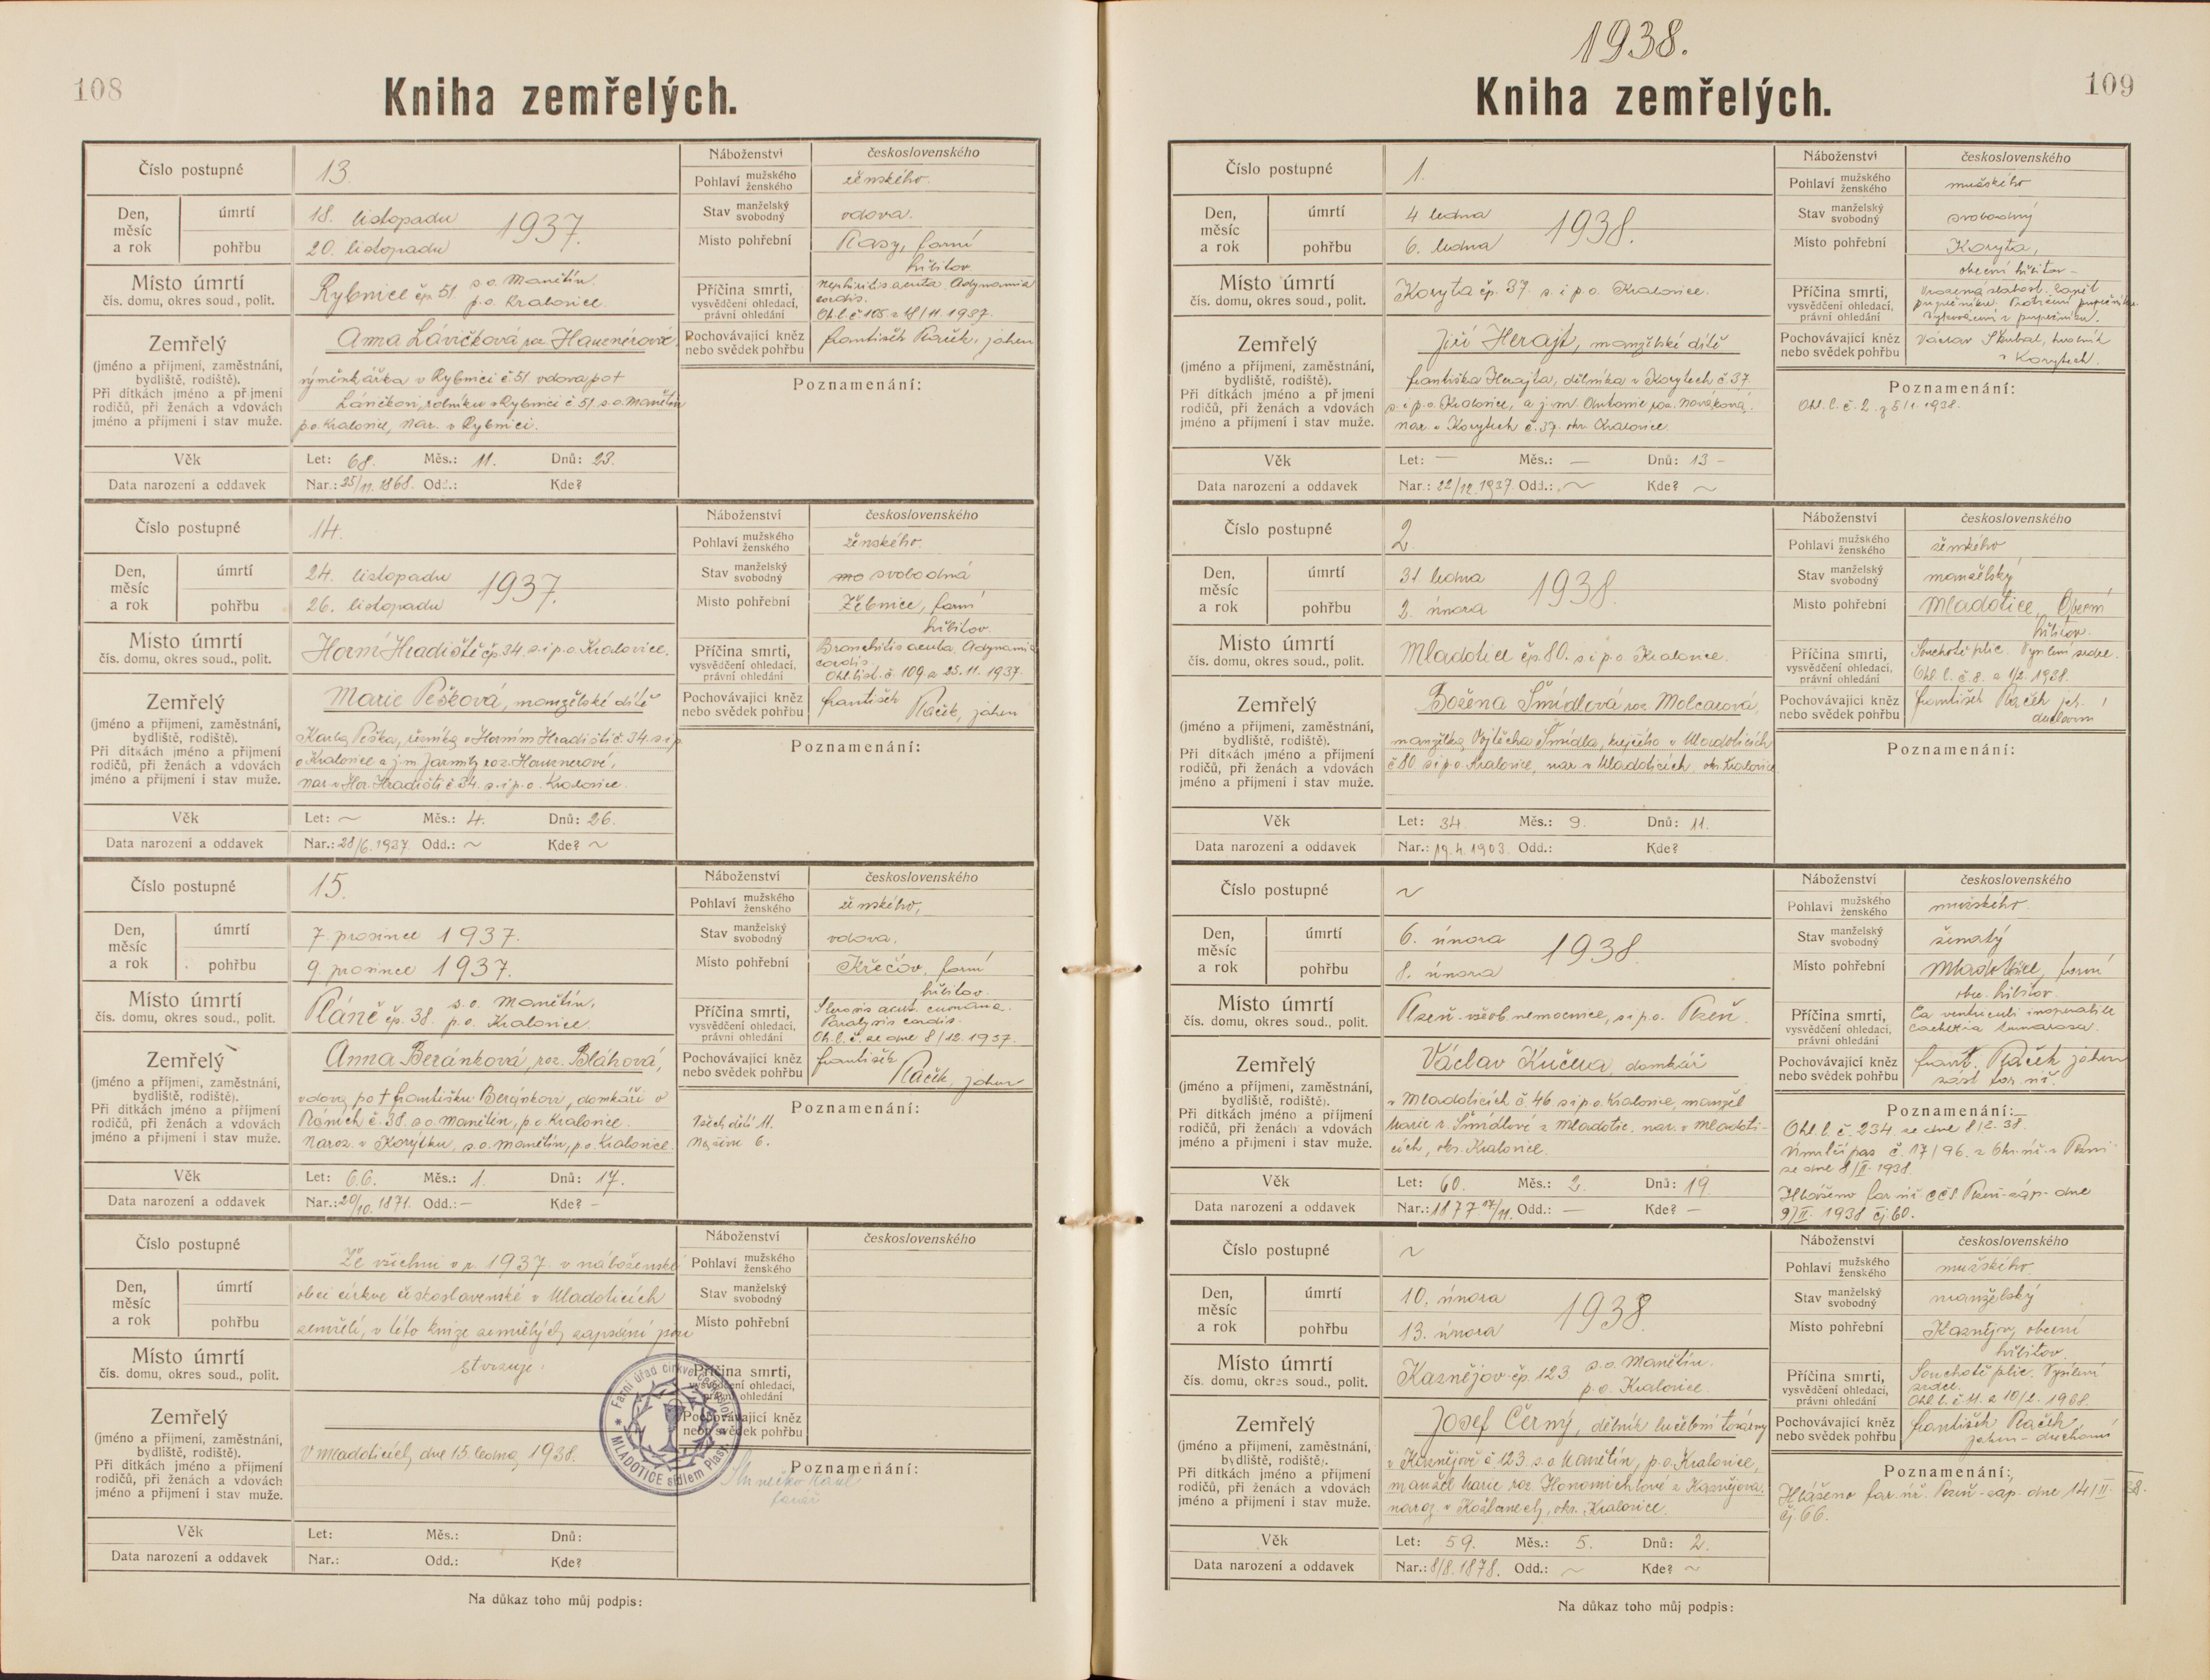 108
Kniha zemřelých.
Číslo postupné 13.
Náboženství československého
Pohlaví mužského ženského ženského.
Den, měsíc a rok úmrtí 18. listopadu 1937.
Stav manželský svobodný vdova.
pohřbu 20. listopadu
Místo pohřební Plasy, farní
hřbitov
Místo úmrtí čís. domu, okres soud., polit. Rybnice čp. 51 s.o. Manětín
p.o. Kralovice.
Příčina smrti, vysvědčení ohledací, právní ohledání Nephritis acuta. Adynamia
cordis.
Ohl. l. č. 105 z 18/11. 1937.
Zemřelý Anna Lávičková roz. Hauznerová
Pochovávající kněz nebo svědek pohřbu František Plaček, jáhen
(jméno a příjmení, zaměstnání, bydliště, rodiště). Při dítkách jméno a příjmení rodičů, při ženách a vdovách jméno a příjmení i stav muže.
výměnkářka v Rybnici č 51 vdova po †
Lávičkovi, rolníku v Rybnici č 51 s.o. Manětín
p.o. Kralovice, nar. v Rybnici.
Poznamenání:
Věk Let: 68. Měs.: 11. Dnů: 23.
Data narození a oddavek Nar.: 25/11. 1868. Odd.: Kde?
Číslo postupné 14.
Náboženství československého
Pohlaví mužského ženského ženského.
Den, měsíc a rok úmrtí 24. listopadu 1937.
Stav manželský svobodný svobodná
pohřbu 26. listopadu
Místo pohřební Žebnice, farní
hřbitov.
Místo úmrtí čís. domu, okres soud., polit. Horní Hradiště čp. 34. s. i p. o. Kralovice.
Příčina smrti, vysvědčení ohledací, právní ohledání Bronchitis acuta. Adynamia
cordis.
Ohl. list. č. 109 z 25. 11. 1937.
Zemřelý Marie Pešková, manželské dítě
Pochovávající kněz nebo svědek pohřbu František
Plaček, jáhen
(jméno a příjmení, zaměstnání, bydliště, rodiště). Při dítkách jméno a příjmení rodičů, při ženách a vdovách jméno a příjmení i stav muže.
Karla Peška, řezníka v Horním Hradišti č. 34. s. i p.
o Kralovice a j. m. Jarmily roz. Hauznerové,
nar. v Hor. Hradišti č 34. s. i p. o. Kralovice.
Poznamenání:
Věk Let: ~ Měs.: 4. Dnů: 26.
Data narození a oddavek Nar.: 28/6. 1937. Odd.: ~ Kde? ~
Číslo postupné 15.
Náboženství československého
Pohlaví mužského ženského ženského,
Den, měsíc a rok úmrtí 7 prosince 1937.
Stav manželský svobodný vdova.
pohřbu 9 prosince 1937.
Místo pohřební Křečov, farní
hřbitov.
Místo úmrtí čís. domu, okres soud., polit. Pláně čp. 38. s.o. Manětín.
p.o. Kralovice
Příčina smrti, vysvědčení ohledací, právní ohledání
Paralysis cordis.
Oh. l. č. ze dne 8/12. 1937.
Zemřelý Anna Beránková, roz. Bláhová,
Pochovávající kněz nebo svědek pohřbu František
Plaček, jáhen
(jméno a příjmení, zaměstnání, bydliště, rodiště). Při dítkách jméno a příjmení rodičů, při ženách a vdovách jméno a příjmení i stav muže.
vdova po † Františku Beránkovi, domkáři v
Pláních č. 38. s.o. Manětín, p.o. Kralovice.
Naroz. v Korýtku, s.o. Manětín, p.o. Kralovice.
Poznamenání:
Všech dětí 11.
Na živu 6.
Věk Let: 66. Měs.: 1. Dnů: 17.
Data narození a oddavek Nar.: 20/10. 1871. Odd.: - Kde? -
Číslo postupné
Náboženství československého
Že všichni v r. 1937. v náboženské
Pohlaví mužského ženského
Den, měsíc a rok úmrtí obci církve československé v Mladoticích
Stav manželský svobodný
pohřbu zemřelí, v této knize zemřelých zapsáni jsou
Místo pohřební
Místo úmrtí čís. domu, okres soud., polit. stvrzuje:
Příčina smrti, vysvědčení ohledací, právní ohledání
Farní úřad církve českoslov. MLADOTICE sídlem Plasy.
Zemřelý
Pochovávající kněz nebo svědek pohřbu
(jméno a příjmení, zaměstnání, bydliště, rodiště). Při dítkách jméno a příjmení rodičů, při ženách a vdovách jméno a příjmení i stav muže.
V Mladoticích, dne 15. ledna 1938.
Poznamenání:
farář
Věk Let: Měs.: Dnů:
Data narození a oddavek Nar.: Odd.: Kde?
Na důkaz toho můj podpis:
1938.
109
Kniha zemřelých.
Číslo postupné 1.
Náboženství československého
Pohlaví mužského ženského mužského
Den, měsíc a rok úmrtí 4 ledna 1938.
Stav manželský svobodný svobodný
pohřbu 6. ledna
Místo pohřební Koryta,
obecní hřbitov -
Místo úmrtí čís. domu, okres soud., polit. Koryta čp. 37. s. i p. o. Kralovice.
Příčina smrti, vysvědčení ohledací, právní ohledání Vrozená slabost. Zánět
pupečníku.
Vykrvácení z pupečníku.
Zemřelý Jiří Herajt, manželské dítě
Pochovávající kněz nebo svědek pohřbu Václav Škubal, hrobník
v Korytech.
(jméno a příjmení, zaměstnání, bydliště, rodiště). Při dítkách jméno a příjmení rodičů, při ženách a vdovách jméno a příjmení i stav muže.
Františka Herajta, dělníka v Korytech č 37.
s. i p. o. Kralovice, a j. m. Antonie roz. Nováková.
nar. v Korytech č. 37. okr. Kralovice.
Poznamenání:
Ohl. l. č. 2. z 5/1. 1938.
Věk Let: — Měs.: — Dnů: 13 -
Data narození a oddavek Nar.: 22/12. 1937. Odd.: ~ Kde? ~
Číslo postupné 2.
Náboženství československého
Pohlaví mužského ženského ženského
Den, měsíc a rok úmrtí 31 ledna 1938.
Stav manželský svobodný manželský
pohřbu 2. února
Místo pohřební Mladotice, Obecní
hřbitov.
Místo úmrtí čís. domu, okres soud., polit. Mladotice čp. 80. s. i p. o. Kralovice.
Příčina smrti, vysvědčení ohledací, právní ohledání Souchotě plic. Vysílení srdce.
Ohl. l. č 8. z 1/2. 1938.
Zemřelý Božena Šmídlová roz. Molcarová,
Pochovávající kněz nebo svědek pohřbu František Plaček jáh.
duchovní
(jméno a příjmení, zaměstnání, bydliště, rodiště). Při dítkách jméno a příjmení rodičů, při ženách a vdovách jméno a příjmení i stav muže.
manželka Vojtěcha Šmídla, krejčího v Mladoticích
č 80. s i p. o. Kralovice, nar. v Mladoticích, okr. Kralovice
Poznamenání:
Věk Let: 34. Měs.: 9. Dnů: 11.
Data narození a oddavek Nar.: 19. 4. 1903. Odd.: Kde?
Číslo postupné ~
Náboženství československého
Pohlaví mužského ženského mužského.
Den, měsíc a rok úmrtí 6. února 1938.
Stav manželský svobodný ženatý
pohřbu 8. února
Místo pohřební Mladotice, farní
obec. hřbitov.
Místo úmrtí čís. domu, okres soud., polit. Plzeň - všeob. nemocnice, s i p. o. Plzeň.
Příčina smrti, vysvědčení ohledací, právní ohledání Ca ventriculi inoperabile
Cachexia tumorosa.
Zemřelý Václav Kučera, domkář
Pochovávající kněz nebo svědek pohřbu Frant. Plaček jáhen
zást. far. úř.
(jméno a příjmení, zaměstnání, bydliště, rodiště). Při dítkách jméno a příjmení rodičů, při ženách a vdovách jméno a příjmení i stav muže.
v Mladoticích č. 46. s i p. o. Kralovice, manžel
Marie r. Šmídlové z Mladotic. nar. v Mladoti-
cích, okr. Kralovice.
Poznamenání:
Ohl. l. č. 234 ze dne 8/2. 38.
Úmrlčí pas č. 17/96. z Okr. úř. v Plzni
ze dne 8/II. 1938.
Hlášeno far. úř. CČS. Plzeň - záp. dne
9/II. 1938 čj. 60.
Věk Let: 60. Měs.: 2. Dnů: 19.
Data narození a oddavek Nar.: 1877 Odd.: — Kde? —
Číslo postupné ~
Náboženství československého
Pohlaví mužského ženského mužského
Den, měsíc a rok úmrtí 10. února 1938.
Stav manželský svobodný manželský
pohřbu 13. února
Místo pohřební Kaznějov, obecní
hřbitov.
Místo úmrtí čís. domu, okres soud., polit. Kaznějov čp. 123 s.o. Manětín.
p.o. Kralovice.
Příčina smrti, vysvědčení ohledací, právní ohledání Souchotě plic. Vysílení
srdce.
Ohl. l. č 11. z 10/2. 1938.
Zemřelý Josef Černý, dělník lučební továrny
Pochovávající kněz nebo svědek pohřbu František Plaček
jáhen - duchovní
(jméno a příjmení, zaměstnání, bydliště, rodiště). Při dítkách jméno a příjmení rodičů, při ženách a vdovách jméno a příjmení i stav muže.
v Kaznějově č. 123. s. o Manětín, p. o. Kralovice,
manžel Marie roz. Honomichlové z Kaznějova.
naroz. v Kožlanech, okr. Kralovice.
Poznamenání:
Hlášeno far. úř. Plzeň - záp. dne 14/II. 38.
čj. 66.
Věk Let: 59. Měs.: 5. Dnů: 2.
Data narození a oddavek Nar.: 8/8. 1878. Odd.: ~ Kde? ~
Na důkaz toho můj podpis: